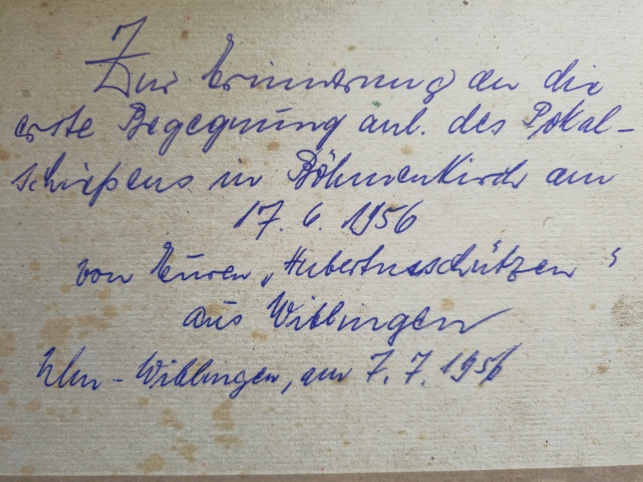 Zur Erinnerung an die
erste Begegnung anl. des Pokal-
schießens in Böhmenkirch am
17. 6. 1956
von Euren „Hubertusschützen“
aus Wiblingen
Ulm - Wiblingen, am 7. 7. 1956